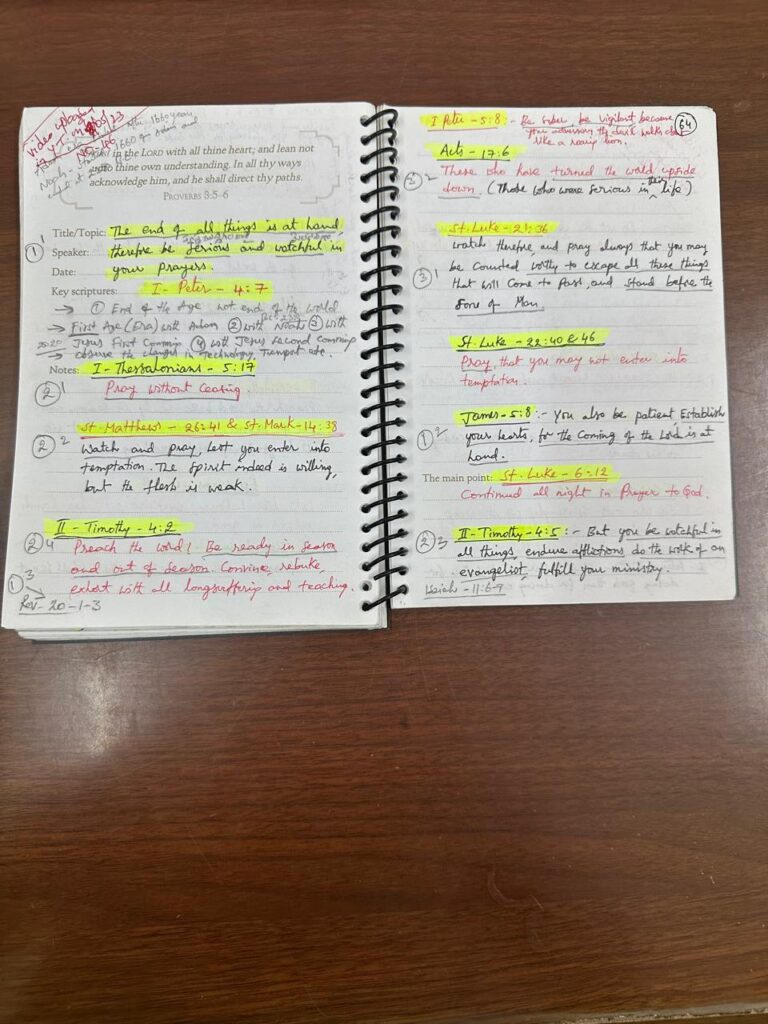 video uploaded
in Y.T. on
/05/23
NO:
1660 years
Noah - 1660
Trust in the LORD with all thine heart; and lean not
unto thine own understanding. In all thy ways
acknowledge him, and he shall direct thy paths.
PROVERBS 3:5-6
Title/Topic: The end of all things is at hand,
① 1 Speaker: therefore be serious and watchful in
Date: your prayers.
Key scriptures: I - Peter - 4:7
→ ① End of the Age not end of the world
→ First Age (Era) with Adam ② with Noah ③ with
Jesus First Comming ④ with Jesus Second comming
→ observe the changes in Technology, Transport etc.
Notes: I - Thessalonians - 5:17
② 1 Pray without Ceasing.
St. Matthews - 26:41 & St. Mark - 14:38
② 2 Watch and pray, lest you enter into
temptation. The Spirit indeed is willing,
but the flesh is weak.
II - Timothy - 4:2
② 4 Preach the word! Be ready in Season
and out of Season. Convince, rebuke,
① 3 exhort with all longsuffering and teaching.
Rev - 20-1-3
I Peter - 5:8 :- Be sober, be vigilant because 64
adversary the walks
like a roaring lion.
Acts - 17:6
③ 2 These who have turned the world upside
down. (Those who were serious in their life)
St. Luke - 21:36
watch therefore and pray always that you may
③ 1 be Counted worthy to escape all these things
that will Come to Pass, and stand before the
Sone of Man.
St. Luke - 22:40 & 46
Pray, that you may not enter into
temptation.
James - 5:8 :- You also be patient, Establish
① 2 your hearts, for the Coming of the Lord is at
hand.
The main point: St. Luke - 6:12
Continued all night in Prayer to God.
② 3 II - Timothy - 4:5 :- But you be watchful in
all things, endure afflictions do the work of an
evangelist, fulfill your ministry.
Isaiah - 11:6-9